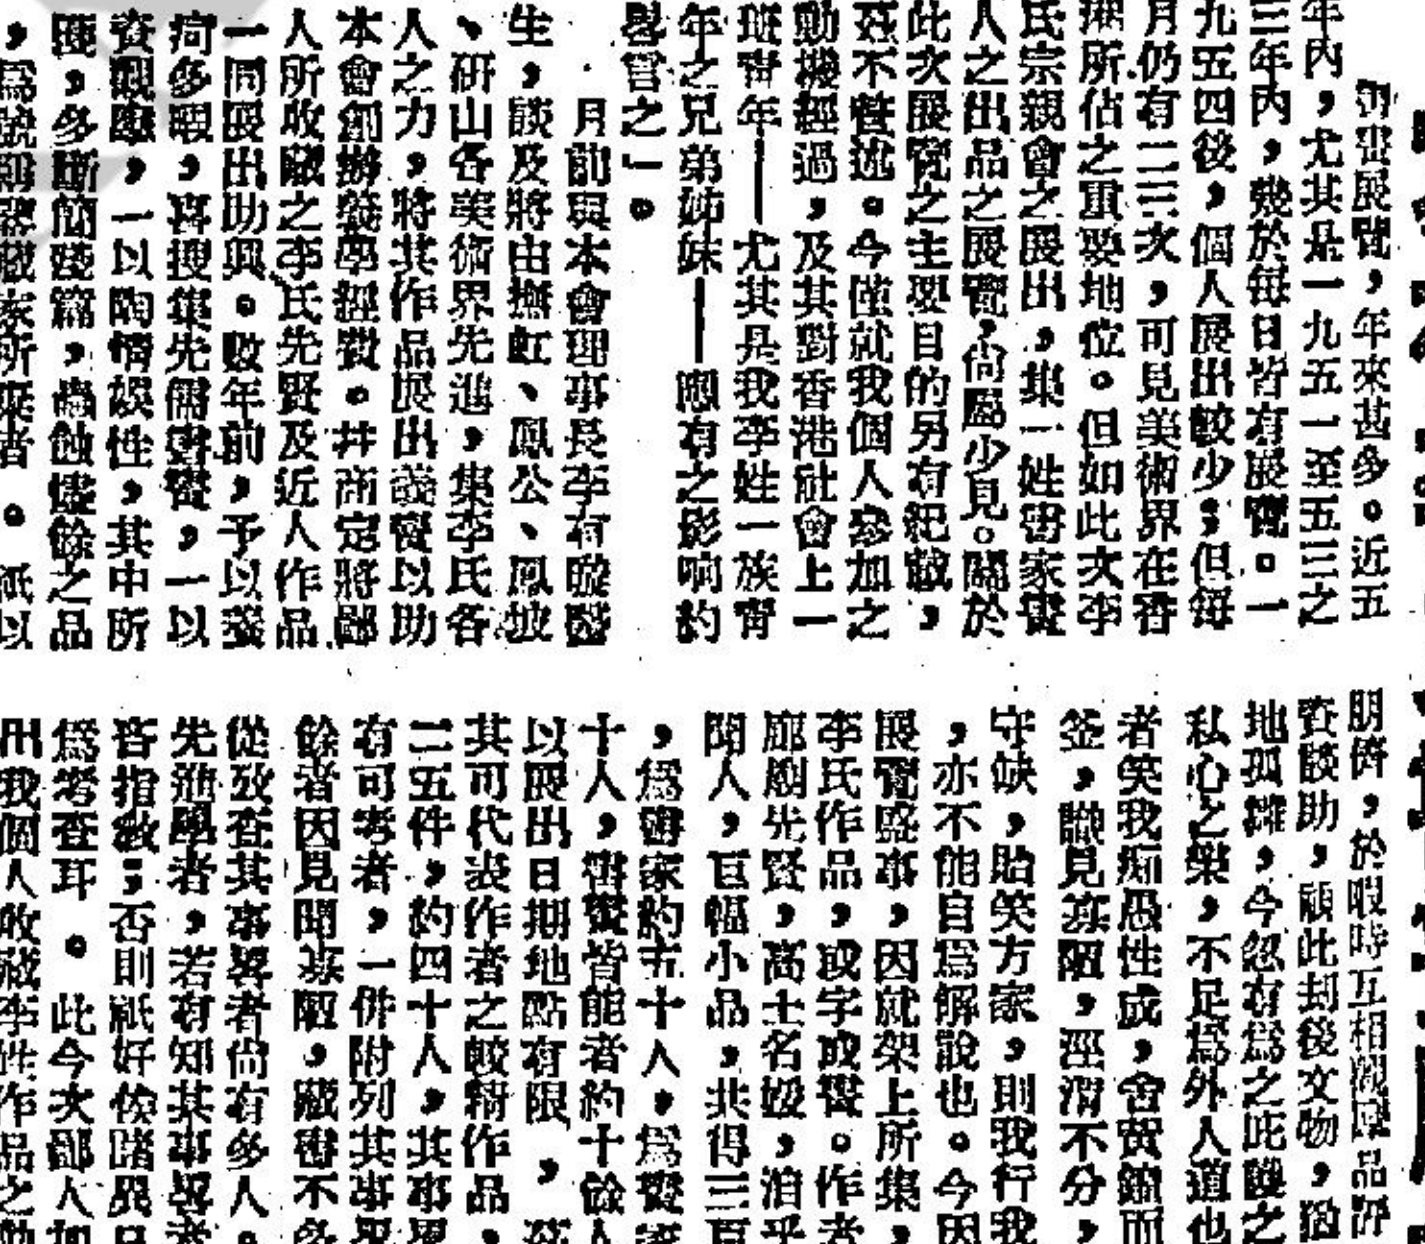 書畫展覽，年來甚多。近五
年內，尤其是一九五一至五三之
三年內，幾於每日皆有展覽。一
九五四後，個人展出較少；但每
月仍有二三次，可見美術界在香
港所佔之重要地位。但如此次李
氏宗親會之展出，集一姓書家畫
人之出品之展覽，尚屬少見。關於
此次展覽之主要目的另有紀載，
茲不贅述。今僅就我個人參加之
動機經過，及其對香港社會上一
班靑年——尤其是我李姓一族靑
年之兄弟姊妹——應有之影响約
畧言之」。
月前與本會理事長李有璇醫
生，談及將由撫虹、鳳公、鳳坡
、研山各美術界先進，集李氏各
人之力，將其作品展出義賣以助
本會創辦義學經費。并商定將鄙
人所收藏之李氏先賢及近人作品
一同展出助興。數年前，予以養
疴多暇，喜搜集先儒書畫，一以
資觀摩，一以陶情娛性，其中所
獲，多斷簡殘篇，蟲蝕燼餘之品
，爲號稱鑒藏家所棄者。祇以
朋儕，於暇時互相觀摩品評
資談助，顧此刧後文物，猶
地孤雛，今忽有爲之庇護之
私心之樂，不足爲外人道也
者笑我痴愚性成，舍黃鐘而
釜，識見寡陋，涇渭不分，
守缺，貽笑方家，則我行我
，亦不能自爲解說也。今因
展覽盛事，因就架上所集，
李氏作品，或字或畫。作者
廊廟先賢，高士名媛，洎乎
聞人，巨幅小品，共得三百
，爲書家約五十人，爲畫家
十人，書畫皆能者約十餘人
以展出日期地點有限，茲
其可代表作者之較精作品，
二五件，約四十人，其事畧
有可考者，一併附列其事畧
餘者因見聞寡陋，藏書不多
從攷查其事畧者尙有多人。
先進學者，若有知其事畧者
吝指敎；否則祇好俟諸異日
爲考查耳。此今次鄙人加
出我個人收藏李姓作品之動